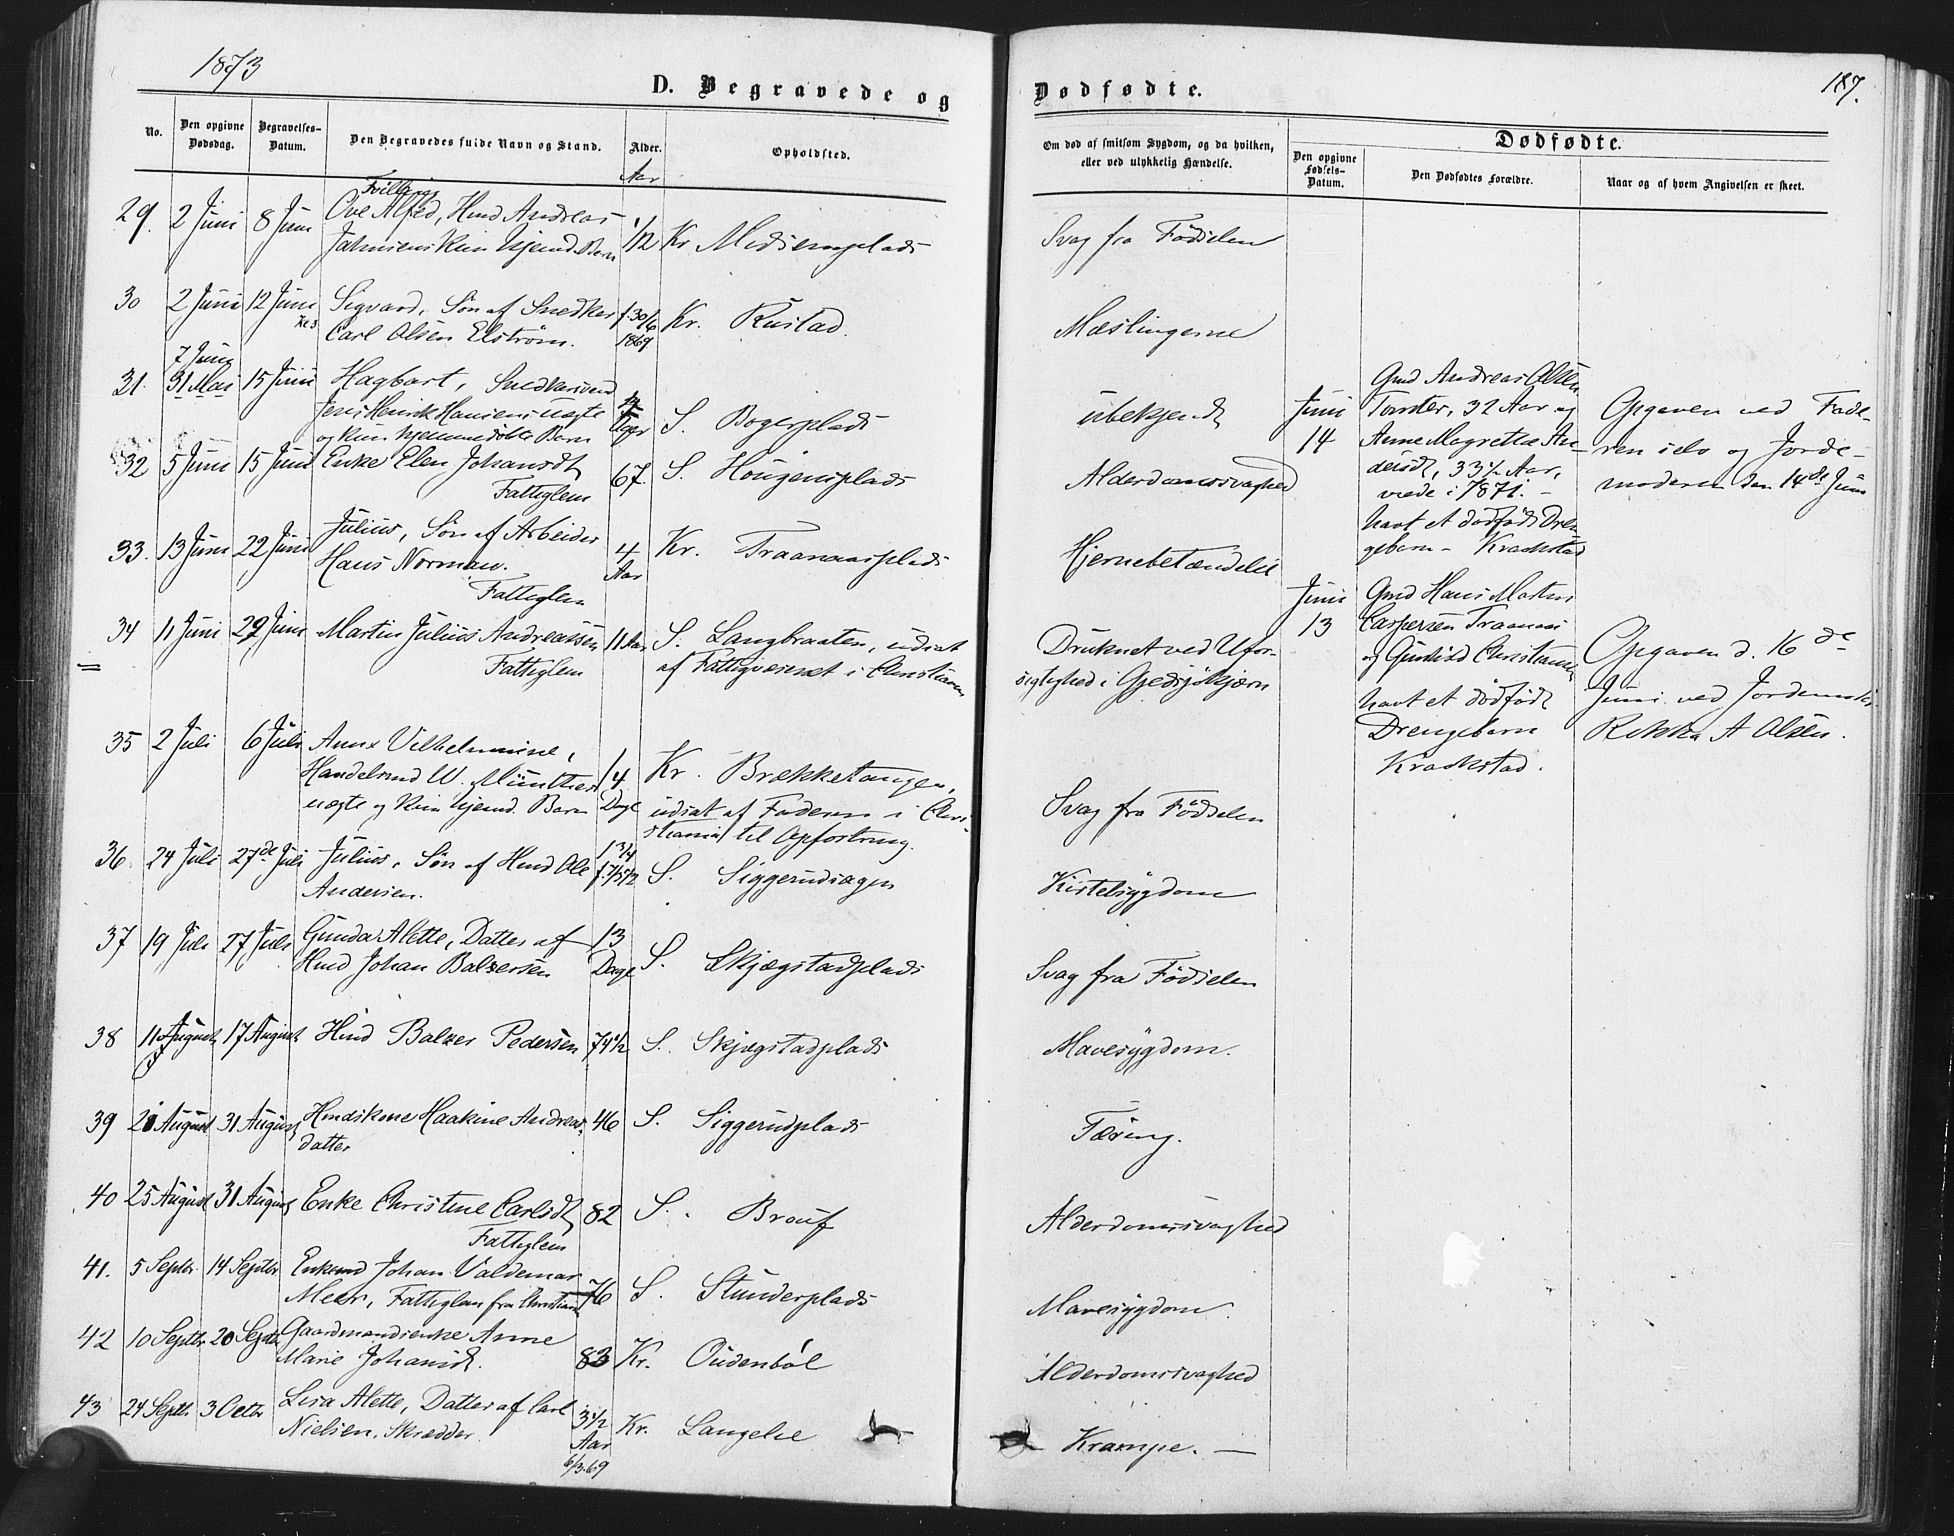 1873
D. Begravede og
No.
Den opgivne Dødsdag.
Begravelses-Datum.
Den Begravedes fulde Navn og Stand.
Alder.
Opholdsted.
Aar
29. 2 Juni 8 Juni Ove Alfred, Hmd Andreas ½ Kr
Tvilling
30 2 Juni 12 Juni Sigvard, Søn af Snedker f. 30/6 Kr. Rustad.
Kl 3
Carl Olsen Elstrøm. 1869
7 Juni
31. 31 Mai 15 Juni Hagbart, Snedkersvend
Jens Henrik Hansens uægte Uger S. Bogerplads
og kun hjemmedøbte Barn
32 5 Juni 15 Juni Enke Elen Johansdt 67. S. Hougensplads
Fattiglem
33. 13 Juni 22 Juni Julius, Søn af Arbeider 4 Kr. Traanaasplads
Hans Norman. Aar
Fattiglem
34 11 Juni 29 Juni Martin Julius Andreassen 11 Aar S. Langbraaten, udsat
Fattiglem af Fattigvæsenet i Christiania
35 2 Juli 6 Juli Anna Vilhelmine,
Handelsmd W. Münthers 14 Kr. Brækketangen,
uægte og kun hjemd. Barn Dage udsat af Faderen i Chri-
stiania til Opfostring.
36. 24 Juli 27de Juli Julius, Søn af Hmd Ole 1 3/4 S. Siggerudsagen
Andersen.
37 19 Juli 27 Juli Gunda Alette, Datter af 13 S. Skjægstadplads
Hmd Johan Balzersen Dage
38 11 August 17 August Hmd Balzer Pedersen 74½ S. Skjægstadplads
39 20 August 31 August Hmdskone Haakine Andreas- 46 S. Siggerudplads
datter
40 25 August 31 August Enke Christine Carlsdt 82 S. Brouf
Fattiglem
41. 5 Septbr 14 Septbr Enkemd Johan Valdemar 76 S. Stunderplads
Meer, Fattiglem fra Christiania
42 10 Septbr 20 Septbr Gaardmandsenke Anne
Marie Johansd. 83 Kr. Oudenbøl
43 24 Septbr 3 Octbr Lisa Alette, Datter af Carl 3½ Kr. Langelie
Nielsen, Skrædder. Aar
6/3.69
187.
Dødfødte.
Om død af smitsom Sygdom, og da hvilken,
eller ved ulykkelig Hændelse.
Dødfødte.
Den opgivne Fødsels-Datum.
Den Dødfødtes Forældre.
Naar og af hvem Angivelsen er skeet.
Svag fra Fødselen
Mæslingerne
ubekjendt
Alderdomssvaghed
Hjernebetændelse
Druknet ved Ufor-
sigtighed i Gjedsjøkjærn
Svag fra Fødselen
Kirtelsygdom
Svag fra Fødselen
Mavesygdom.
Tæring.
Alderdomssvaghed
Mavesygdom.
Alderdomssvaghed
Krampe. —
Juni
14
Gmd Andreas Olsen
Tomter, 32 Aar og
Anne Magrethe An-
dersdt, 33½ Aar,
viede i 1871. -
havt et dødfødt Dren-
gebarn - Kraakstad
Opgaven ved Fade-
ren selv og Jorde-
moderen den 14de Juni
Juni
13
Gmd Hans Martin
Caspersen Traanaas
og Christiansen
havt et dødfødt
Drengebarn
Kraakstad.
Opgaven d. 16de
Juni ved Jordemoder
A Olsen.